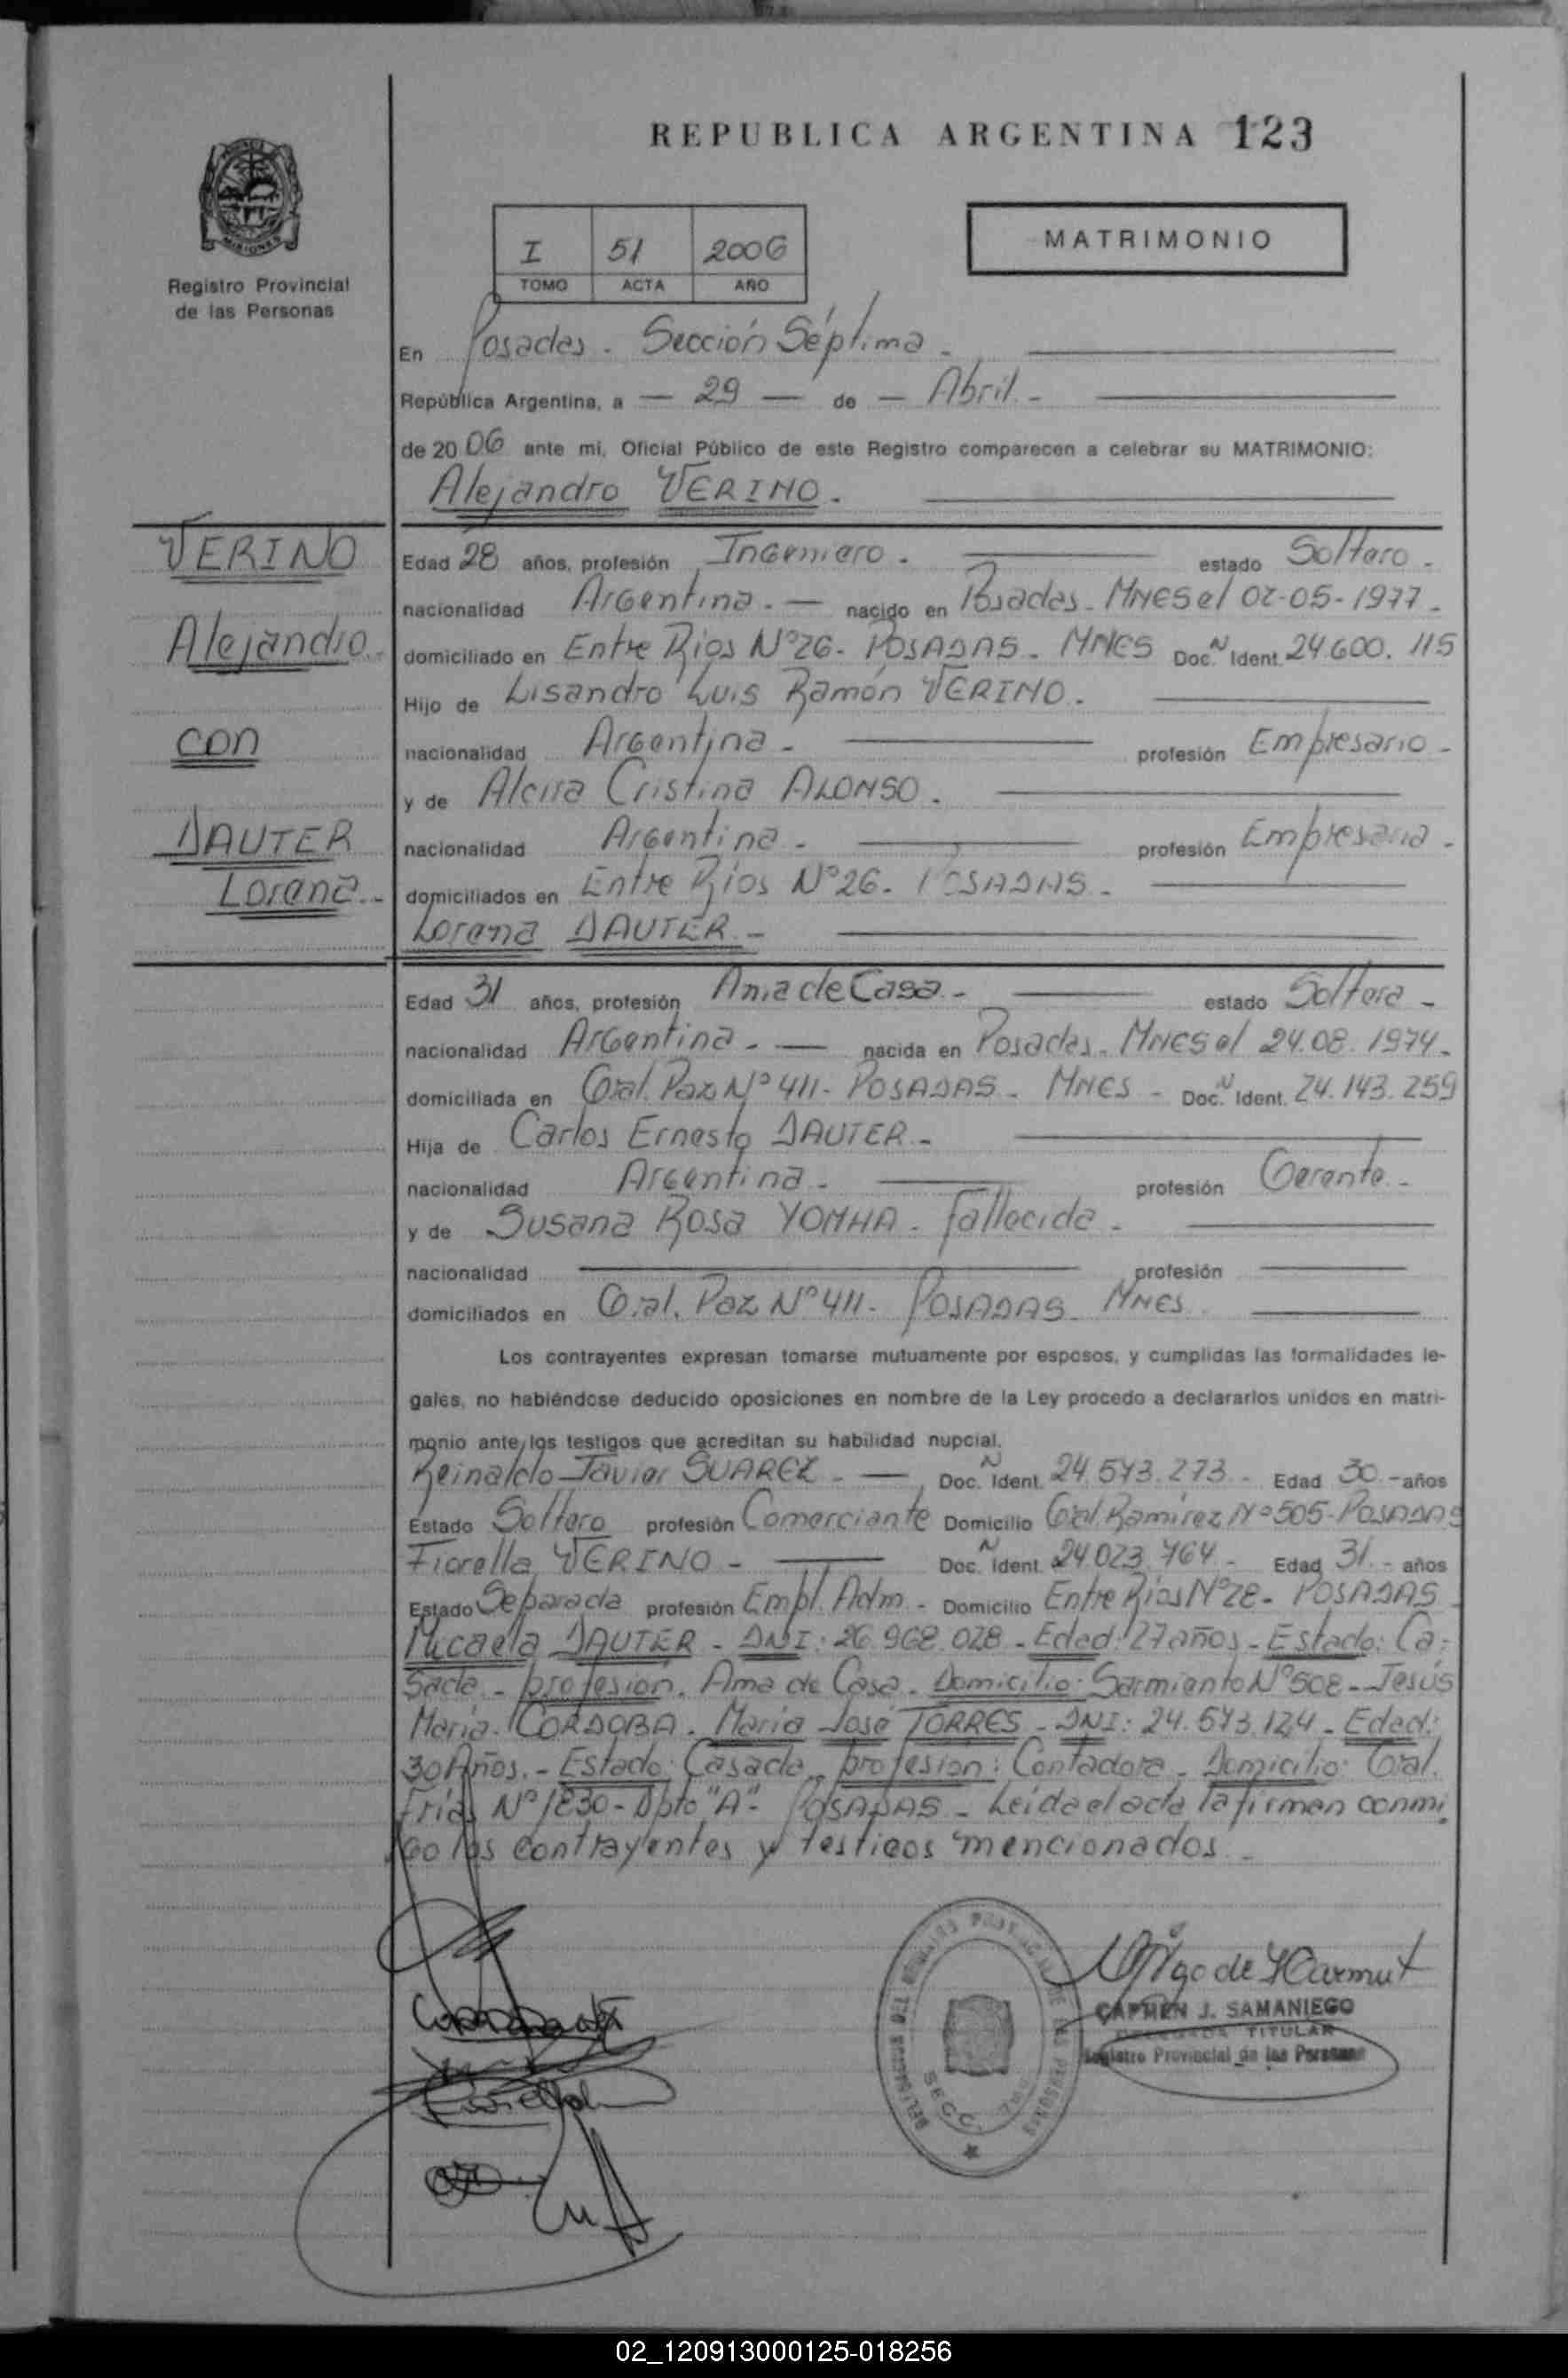 REPUBLICA ARGENTINA 123
MISIONES
Registro Provincial
de las Personas
I 51 2006
TOMO ACTA AÑO
MATRIMONIO
En Posadas - Sección Séptima -
República Argentina, a — 29 — de — Abril -
de 20 06 ante mi, Oficial Público de este Registro comparecen a celebrar su MATRIMONIO:
Alejandro VERINO -
VERINO
Alejandro -
con
DAUTER
Lorena -
Edad 28 años, profesión Ingeniero - estado Soltero -
nacionalidad Argentina - — nacido en Posadas - MNES el 02-05-1977 -
domiciliado en Entre Ríos Nº 26 - POSADAS - MNES Doc. N Ident. 24.600.115
Hijo de Lisandro Luis Ramón VERINO -
nacionalidad Argentina - profesión Empresario -
y de Alcira Cristina ALONSO -
nacionalidad Argentina - profesión Empresaria -
domiciliados en Entre Ríos Nº 26 - POSADAS -
Lorena DAUTER -
Edad 31 años, profesión Ama de Casa - estado Soltera -
nacionalidad Argentina - — nacida en Posadas - MNES el 24.08.1974 -
domiciliada en Gral. Paz Nº 411 - POSADAS - MNES - Doc. N Ident. 24.143.259
Hija de Carlos Ernesto DAUTER -
nacionalidad Argentina - profesión Gerente -
y de Susana Rosa YONHA - fallecida -
nacionalidad profesión
domiciliados en Gral. Paz Nº 411 - POSADAS - MNES
Los contrayentes expresan tomarse mutuamente por esposos, y cumplidas las formalidades le-
gales, no habiéndose deducido oposiciones en nombre de la Ley procedo a declararlos unidos en matri-
monio ante los testigos que acreditan su habilidad nupcial.
Reinaldo Javier SUAREZ - — Doc. N Ident. 24.573.273 - Edad 30 - años
Estado Soltero profesión Comerciante Domicilio Gral. Ramírez Nº 505 - POSADAS
Fiorella VERINO - Doc. N Ident. 24.023.764 - Edad 31 - años
Estado Separada profesión Empl. Adm. - Domicilio Entre Ríos Nº 28 - POSADAS
Micaela DAUTER - DNI: 26.968.028 - Edad: 27 años - Estado: Ca-
sada - profesión. Ama de Casa - Domicilio: Sarmiento Nº 508 - Jesús
María - CORDOBA - María José TORRES - DNI: 24.573.124 - Edad:
30 Años. - Estado: Casada - profesión: Contadora - Domicilio: Gral.
Frías Nº 1830 - Dpto "A" - POSADAS - Leída el acta la firman conmi
go los contrayentes y testigos mencionados -
CARMEN J. SAMANIEGO
TITULAR
Registro Provincial de las Personas
02_120913000125-018256